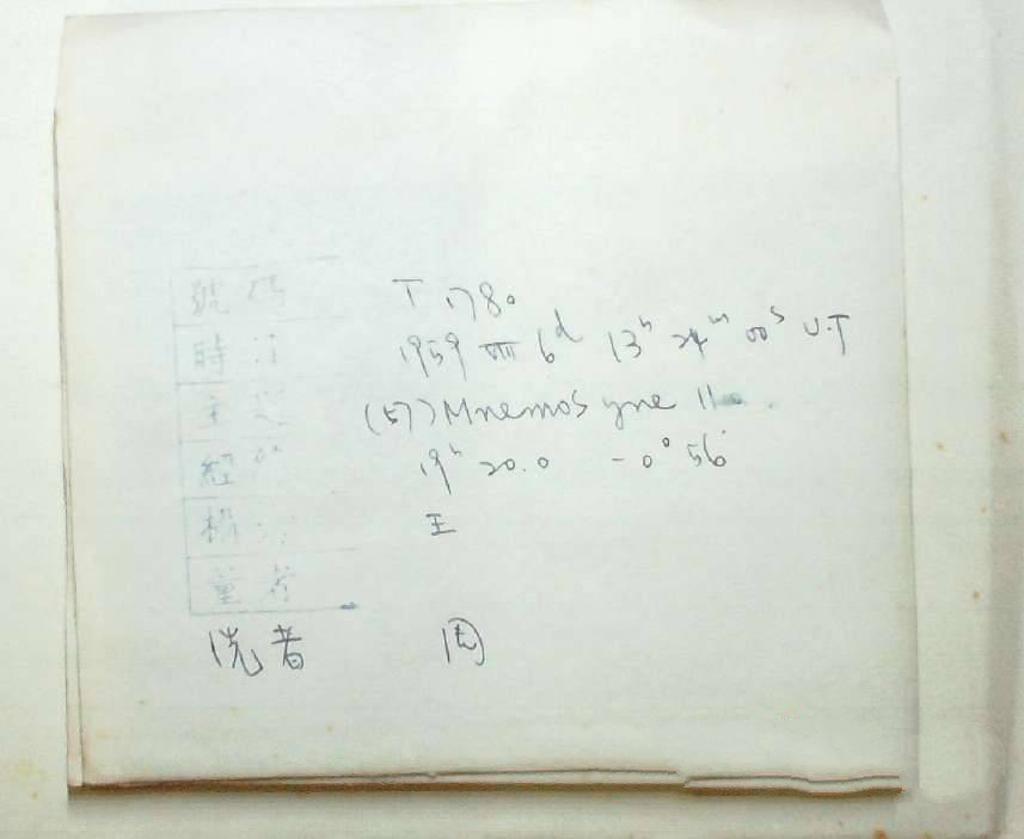 號碼 T 1780
時 1959 VIII 6d 13h 24m 00s U.T
主 (57) Mnemosyne 11
經 19h 20.0 -0° 56'
王
者
洗者 周